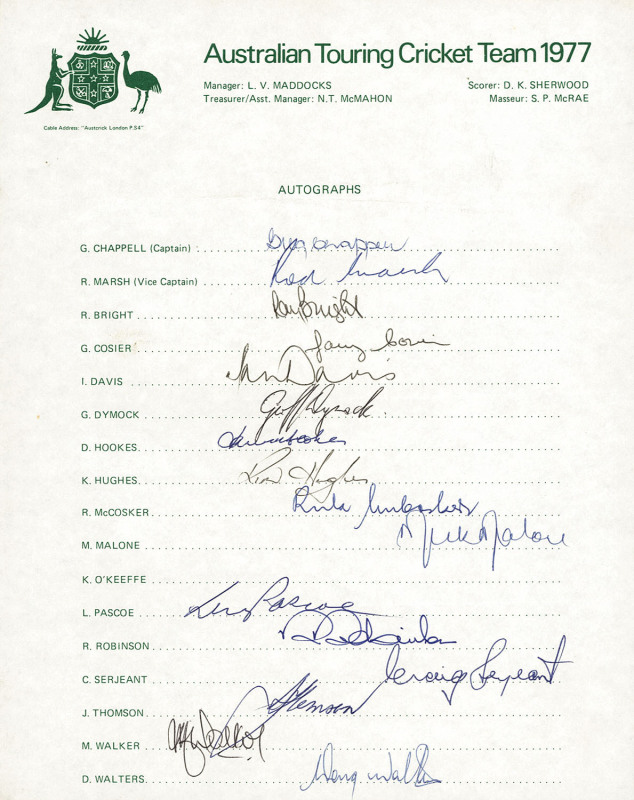 Australian Touring Cricket Team 1977
Manager: L. V. MADDOCKS
Scorer: D. K. SHERWOOD
Treasurer/Asst. Manager: N.T. McMAHON
Masseur: S. P. McRAE
Cable Address: "Austcrick London P.S4"
AUTOGRAPHS
G. CHAPPELL (Captain) Greg Chappell
R. MARSH (Vice Captain) Rod Marsh
R. BRIGHT Ray Bright
G. COSIER Gary Cosier
I. DAVIS Ian Davis
G. DYMOCK Geoff Dymock
D. HOOKES
K. HUGHES Kim Hughes
R. McCOSKER Rick McCosker
M. MALONE Mick Malone
K. O'KEEFFE
L. PASCOE Len Pascoe
R. ROBINSON
C. SERJEANT Craig Serjeant
J. THOMSON J Thomson
M. WALKER M Walker
D. WALTERS Doug Walters